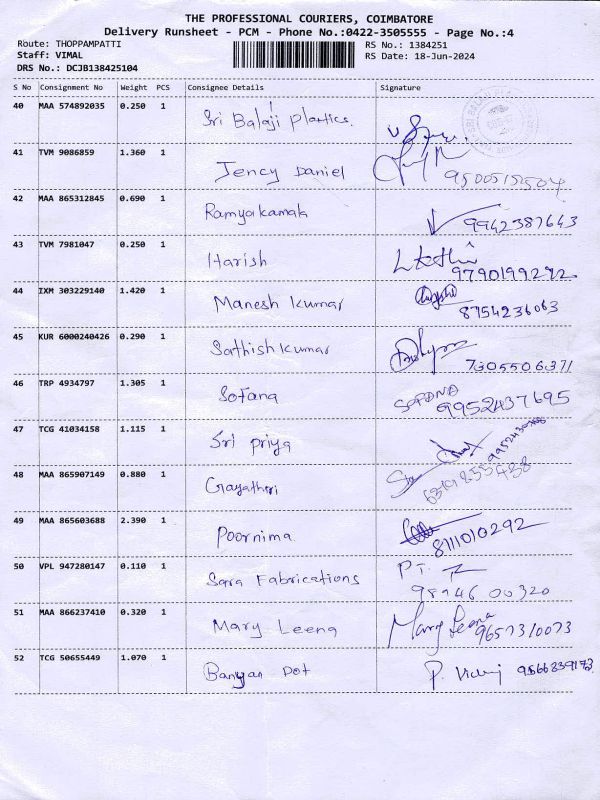 THE PROFESSIONAL COURIERS, COIMBATORE
Delivery Runsheet - PCM - Phone No.:0422-3505555 - Page No.:4
Route: THOPPAMPATTI RS No.: 1384251
Staff: VIMAL RS Date: 18-Jun-2024
DRS No.: DCJB138425104
S No Consignment No Weight PCS Consignee Details Signature
40 MAA 574892035 0.250 1 Sri Balaji Plastics.
41 TVM 9086859 1.360 1 Jency Daniel
42 MAA 865312845 0.690 1 Ramyakamak 9942387643
43 TVM 7981047 0.250 1 Harish 9790199292
44 IXM 303229140 1.420 1 Manesh Kumar 8754236063
45 KUR 6000240426 0.290 1 Sathish Kumar 7305506371
46 TRP 4934797 1.305 1 Sofana SOFANA 9952437695
47 TCG 41034158 1.115 1 Sri priya
48 MAA 865907149 0.880 1 Gayathri
49 MAA 865603688 2.390 1 Poornima 8111010292
50 VPL 947280147 0.110 1 Sara Fabrications PT. 98946 00320
51 MAA 866237410 0.320 1 Mary Leena Mary Leena 9657310073
52 TCG 50655449 1.070 1 Banyan Dot P. 9566239173